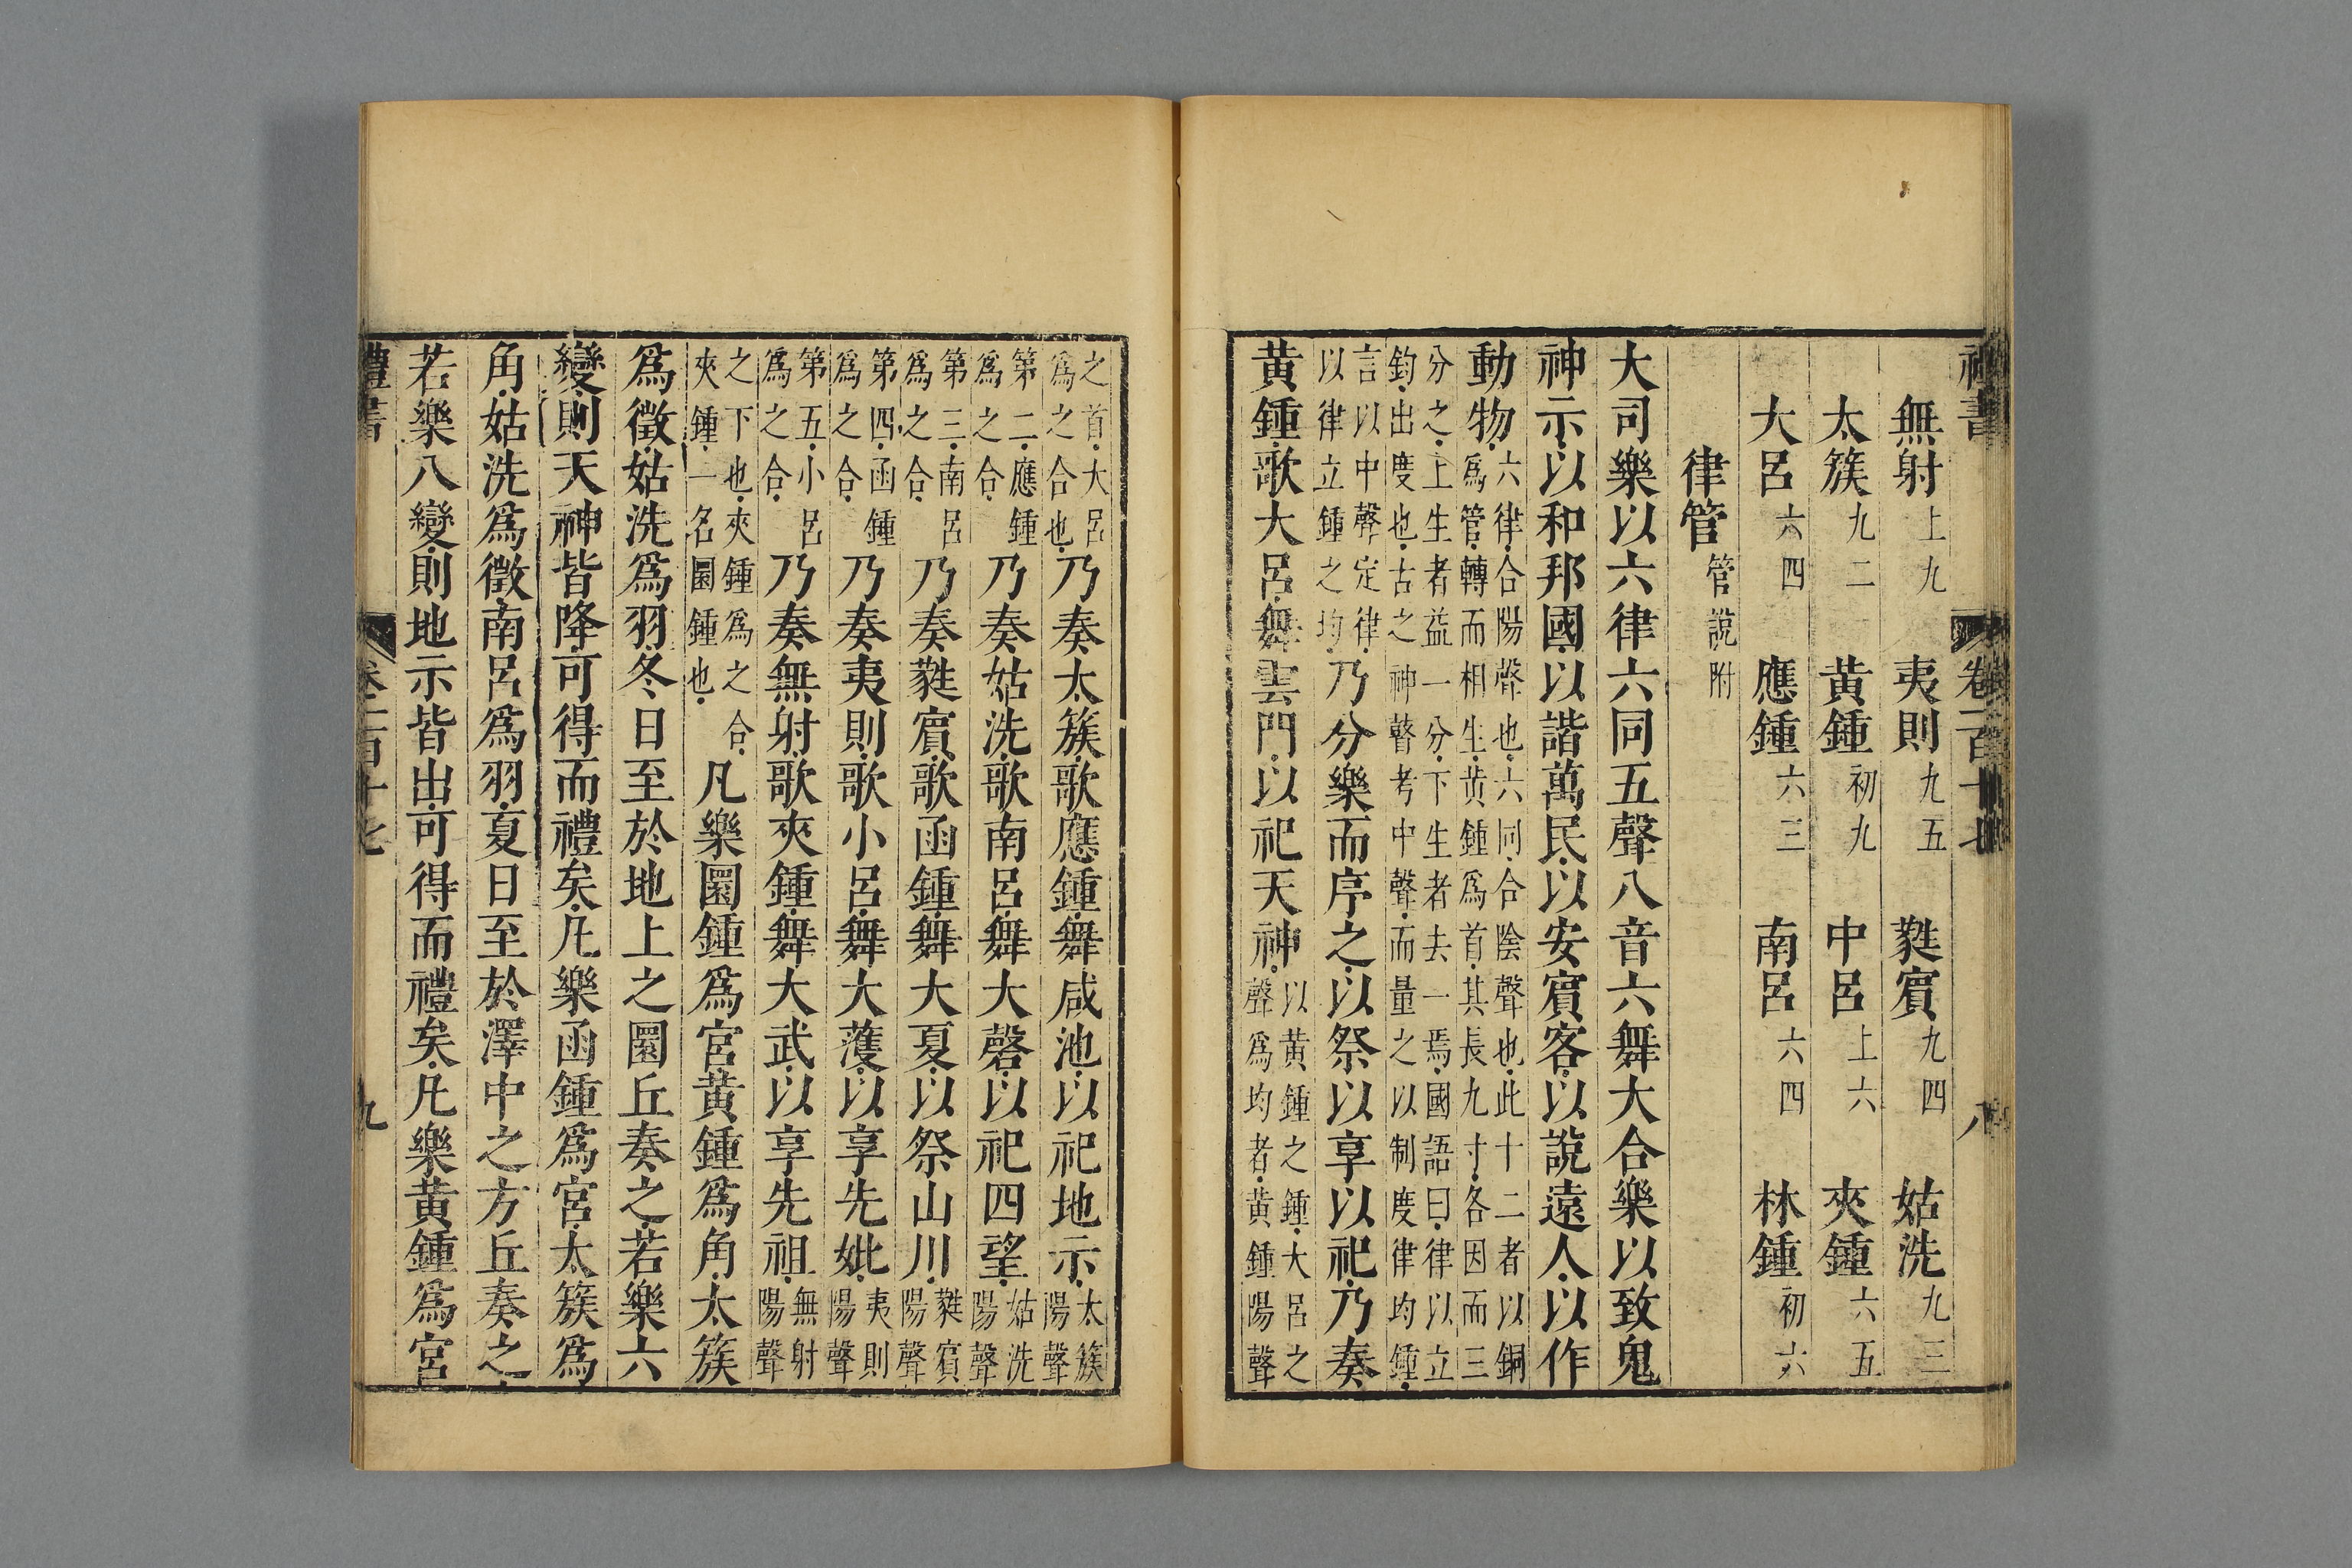 禮書 卷一百十七 八
無射上九 夷則九五 蕤賓九四 姑洗九三
太簇九二 黃鍾初九 中呂上六 夾鍾六五
大呂六四 應鍾六三 南呂六四 林鍾初六
律管管說附
大司樂以六律六同五聲八音六舞大合樂以致鬼
神示以和邦國以諧萬民以安賓客以說遠人以作
動物六律合陽聲也六同合陰聲也此十二者以銅爲管轉而相生黃鍾爲首其長九寸各因而三
分之上生者益一分下生者去一焉國語曰律以立鈞出度也古之神瞽考中聲而量之以制度律均鍾
言以中聲定律以律立鍾之均乃分樂而序之以祭以享以祀乃奏
黃鍾歌大呂舞雲門以祀天神以黃鍾之鍾大呂之聲爲均者黃鍾陽聲
之首大呂爲之合也乃奏太簇歌應鍾舞咸池以祀地示太簇陽聲
第二應鍾爲之合乃奏姑洗歌南呂舞大磬以祀四望姑洗陽聲
第三南呂爲之合乃奏蕤賓歌函鍾舞大夏以祭山川蕤賓陽聲
第四函鍾爲之合乃奏夷則歌小呂舞大濩以享先妣夷則陽聲
第五小呂爲之合乃奏無射歌夾鍾舞大武以享先祖無射陽聲
之下也夾鍾爲之合夾鍾一名圜鍾也凡樂圜鍾爲宮黃鍾爲角太簇
爲徵姑洗爲羽冬日至於地上之圜丘奏之若樂六
變則天神皆降可得而禮矣凡樂函鍾爲宮太簇爲
角姑洗爲徵南呂爲羽夏日至於澤中之方丘奏之
若樂八變則地示皆出可得而禮矣凡樂黃鍾爲宮
禮書 卷一百十七 九